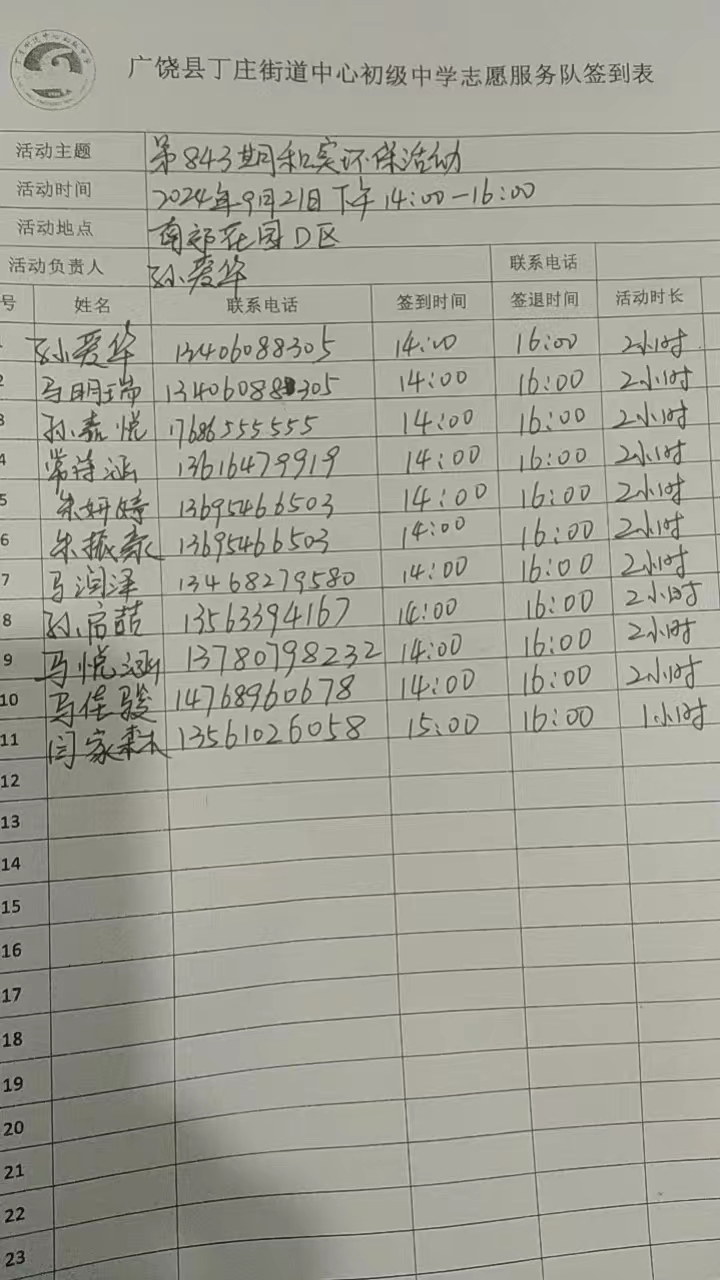 广饶县丁庄街道中心初级中学志愿服务队签到表
活动主题 第843期和实环保活动
活动时间 2024年9月21日下午14:00-16:00
活动地点 南郊花园D区
活动负责人 孙爱华 联系电话
号 姓名 联系电话 签到时间 签退时间 活动时长
孙爱华 13406088305 14:00 16:00 2小时
2 马明瑞 13406088305 14:00 16:00 2小时
3 孙嘉悦 17686555555 14:00 16:00 2小时
4 常诗涵 13616479919 14:00 16:00 2小时
5 朱妍婷 13695466503 14:00 16:00 2小时
6 朱振豪 13695466503 14:00 16:00 2小时
7 马润泽 13468279580 14:00 16:00 2小时
8 孙启喆 13563394167 14:00 16:00 2小时
9 马悦涵 13780798232 14:00 16:00 2小时
10 马佳骏 14768960678 14:00 16:00 2小时
11 闫家森 13561026058 15:00 16:00 1小时
12
13
14
15
16
17
18
19
20
21
22
23